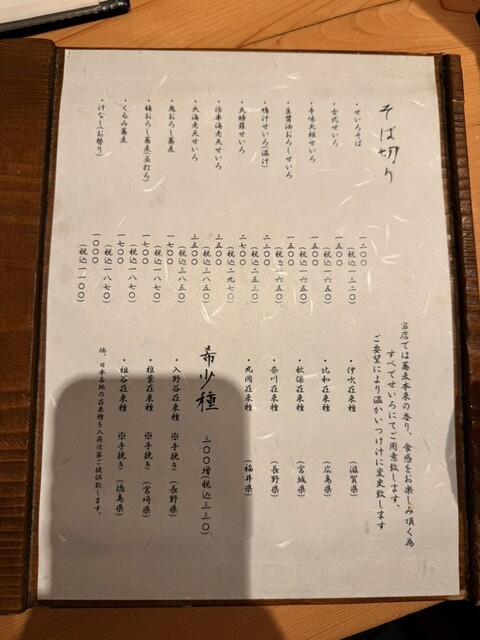 そば切り
・せいろそば 一二〇〇
(税込一三二〇)
・古式せいろ 一五〇〇
(税込一六五〇)
・辛味大根せいろ 一五〇〇
(税込一六五〇)
・生醤油おろしせいろ 一五〇〇
(税込一六五〇)
・鴨汁せいろ(温汁) 二三〇〇
(税込二五三〇)
・天婦羅せいろ 二七〇〇
(税込二九七〇)
・活車海老天せいろ 三五〇〇
(税込三八五〇)
・大海老天せいろ 三五〇〇
(税込三八五〇)
・鬼おろし蕎麦 一七〇〇
(税込一八七〇)
・梅おろし蕎麦 一七〇〇
(税込一八七〇)
・くるみ蕎麦 一七〇〇
(税込一八七〇)
・汁なし(お替り) 一〇〇〇
(税込一一〇〇)
当店では蕎麦本来の香り、食感をお楽しみ頂く為
すべてせいろにてご用意致します、
ご要望により温かいつけ汁に変更致します
・伊吹在来種 (滋賀県)
・比和在来種 (広島県)
・秋保在来種 (宮城県)
・奈川在来種 (長野県)
・丸岡在来種 (福井県)
希少種 三〇〇増(税込三三〇)
・入野谷在来種 ※手挽き (長野県)
・椎葉在来種 ※手挽き (宮崎県)
・祖谷在来種 ※手挽き (徳島県)
他、日本各地の在来種を入荷次第ご提供致します。